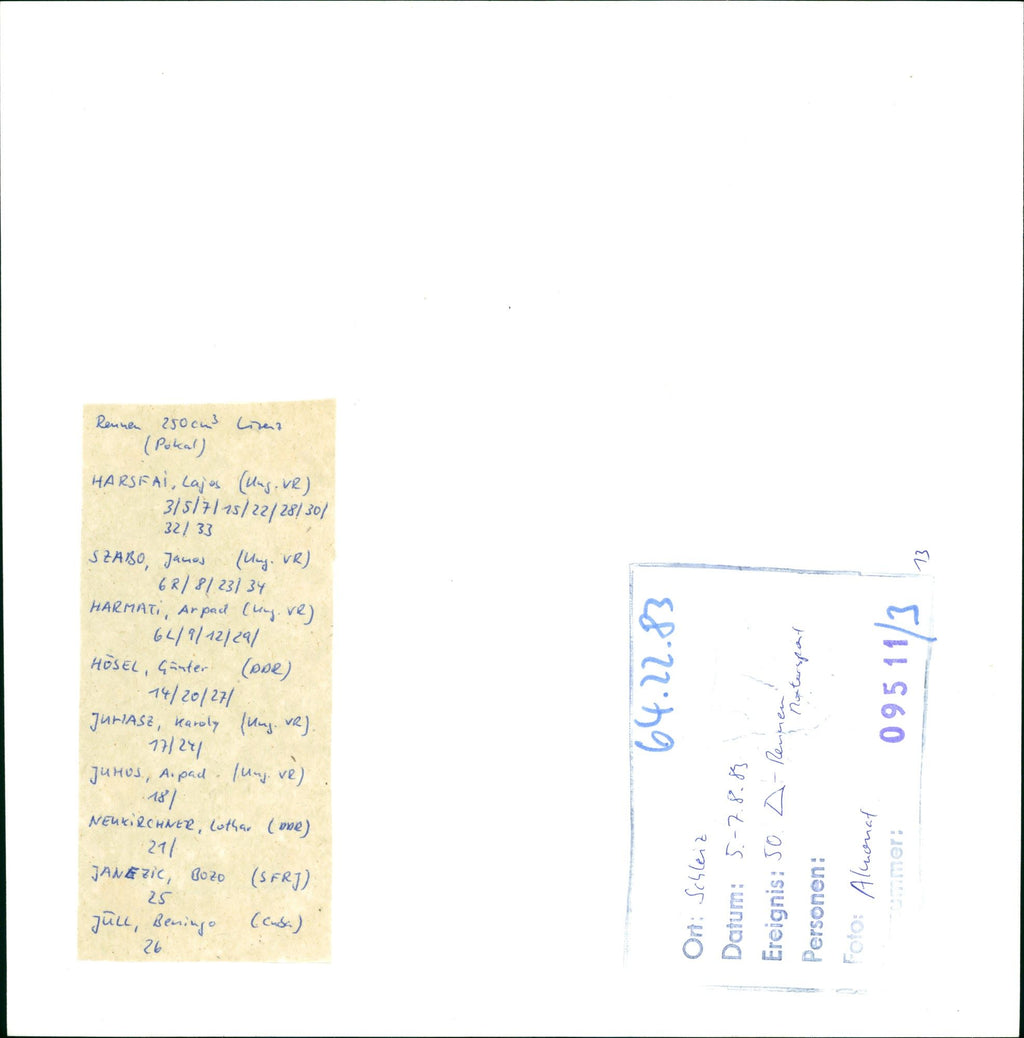 Rennen 250 cm³ Lizenz
(Pokal)
HARSFAI, Lajos (Ung. VR)
3/5/7/15/22/28/30/
32/33
SZABO, Janos (Ung. VR)
6R/8/23/34
HARMATI, Arpad (Ung. VR)
6L/9/12/29/
HÖSEL, Günter (DDR)
14/20/27/
JUHASZ, Karoly (Ung. VR)
17/24/
JUHOS, Arpad (Ung. VR)
18/
NEUKIRCHNER, Lothar (DDR)
21/
JANEZIC, BOZO (SFRJ)
25
JÜLL, Beningo (Cuba)
26
64.22.83
Ort: Schleiz
Datum: 5.-7.8.83
Ereignis: 50. △-Rennen/
Motorsport
Personen:
Foto: Almonat
ummer:
09511/3
13